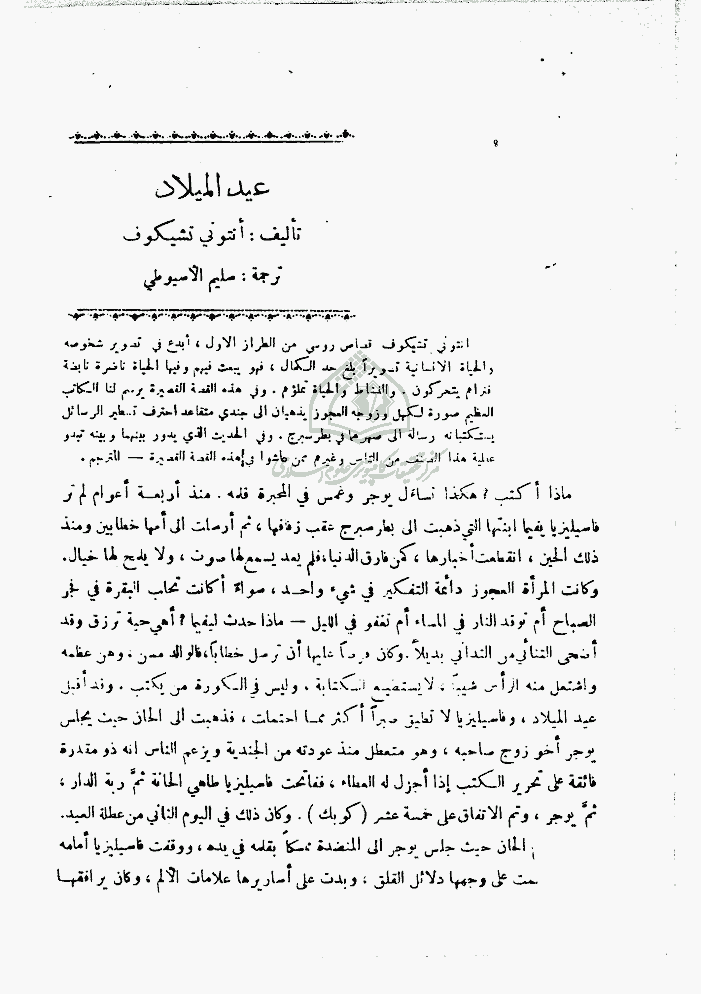 عيد الميلاد
تأليف : أنتوني تشيكوف
ترجمة : سليم الأسيوطي
انتوني تشيكوف قصاص روسي من الطراز الاول ، أبدع في تصوير شخوصه
والحياة الانسانية تصويراً بلغ حد الكمال ، فهو يبعث فيهم وفيها الحياة ناضرة نابضة
فنراهم يتحركون . والنشاط والحياة تملؤهم . وفي هذه القصة القصيرة يرسم لنا الكاتب
العظيم صورة لكهل وزوجه العجوز يذهبان الى جندي متقاعد احترف تسطير الرسائل
يستكتبانه رسالة الى صهرهما في بطرسبرج . وفي الحديث الذي يدور بينهما وبينه تبدو
عقلية هذا الصنف من الناس وغيرهم ممن عاشوا في هذه القصة القصيرة — المترجم .
ماذا أكتب ؟ هكذا تساءل يوجر وغمس في المحبرة قلمه . منذ أربعة أعوام لم تر
فاسيليزيا يفيما ابنتها التي ذهبت الى بطرسبرج عقب زفافها ، ثم أرسلت الى أمها خطابين ومنذ
ذلك الحين ، انقطعت أخبارها ، كمن فارق الدنيا ، فلم يعد يسمع لها صوت ، ولا يلمح لها خيال .
وكانت المرأة العجوز دائمة التفكير في شيء واحد ، سواء أكانت تحلب البقرة في فجر
الصباح أم توقد النار في المساء أم تغفو في الليل — ماذا حدث ليفيما ؟ أهي حية ترزق وقد
أضحى التنائي من التداني بديلاً . وكان فرضاً عليها أن ترسل خطاباً ، فالوالد ممن ، وهن عظمه
واشتعل منه الرأس شيباً ، لا يستطيع الكتابة . وليس في الكورة من يكتب . وقد أقبل
عيد الميلاد ، وفاسيليزيا لا تطيق صبراً أكثر مما احتملت ، فذهبت الى الحان حيث يجلس
يوجر أخو زوج صاحبه ، وهو متعطل منذ عودته من الجندية ويزعم الناس انه ذو مقدرة
فائقة على تحرير الكتب إذا أجزل له العطاء ، ففاتحت فاسيليزيا طاهي الحانة ثمَّ ربة الدار ،
ثمَّ يوجر ، وتم الاتفاق على خمسة عشر ( كوبك ) . وكان ذلك في اليوم الثاني من عطلة العيد .
الحان حيث جلس يوجر الى المنضدة ممسكاً بقلمه في يده ، ووقفت فاسيليزيا أمامه
على وجهها دلائل القلق ، وبدت على أساريرها علامات الألم ، وكان يرافقها